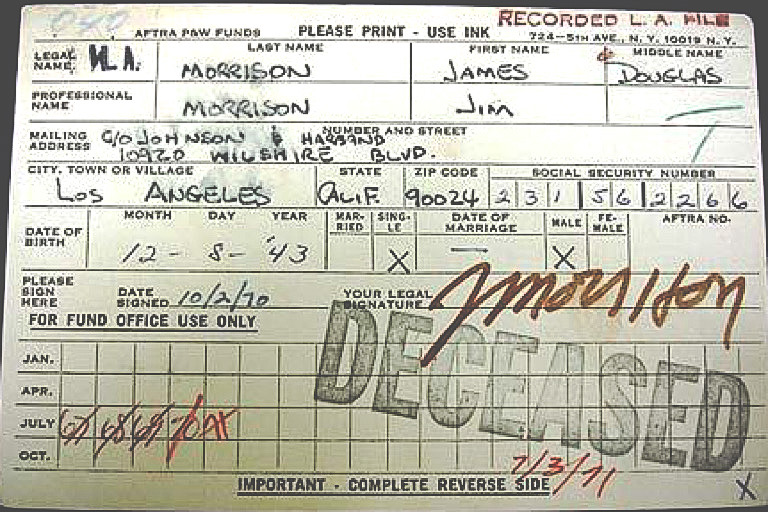 AFTRA P&W FUNDS PLEASE PRINT - USE INK RECORDED L. A. FILE
724-5TH AVE., N. Y. 10019 N. Y.
LEGAL NAME, M. LAST NAME FIRST NAME MIDDLE NAME
MORRISON JAMES DOUGLAS
PROFESSIONAL NAME MORRISON JIM
MAILING ADDRESS NUMBER AND STREET
C/O JOHNSON & HARBAND
10920 WILSHIRE BLVD.
CITY, TOWN OR VILLAGE STATE ZIP CODE SOCIAL SECURITY NUMBER
LOS ANGELES CALIF. 90024 2 3 1 5 6 2 2 6 6
DATE OF BIRTH MONTH DAY YEAR MAR-RIED SING-LE DATE OF MARRIAGE MALE FE-MALE AFTRA NO.
12 - 8 - '43 X — X
PLEASE SIGN HERE DATE SIGNED 10/2/70 YOUR LEGAL SIGNATURE JMorrison
FOR FUND OFFICE USE ONLY
DECEASED
JAN.
APR.
JULY 67 68 69 70
OCT.
7/3/71
IMPORTANT - COMPLETE REVERSE SIDE X